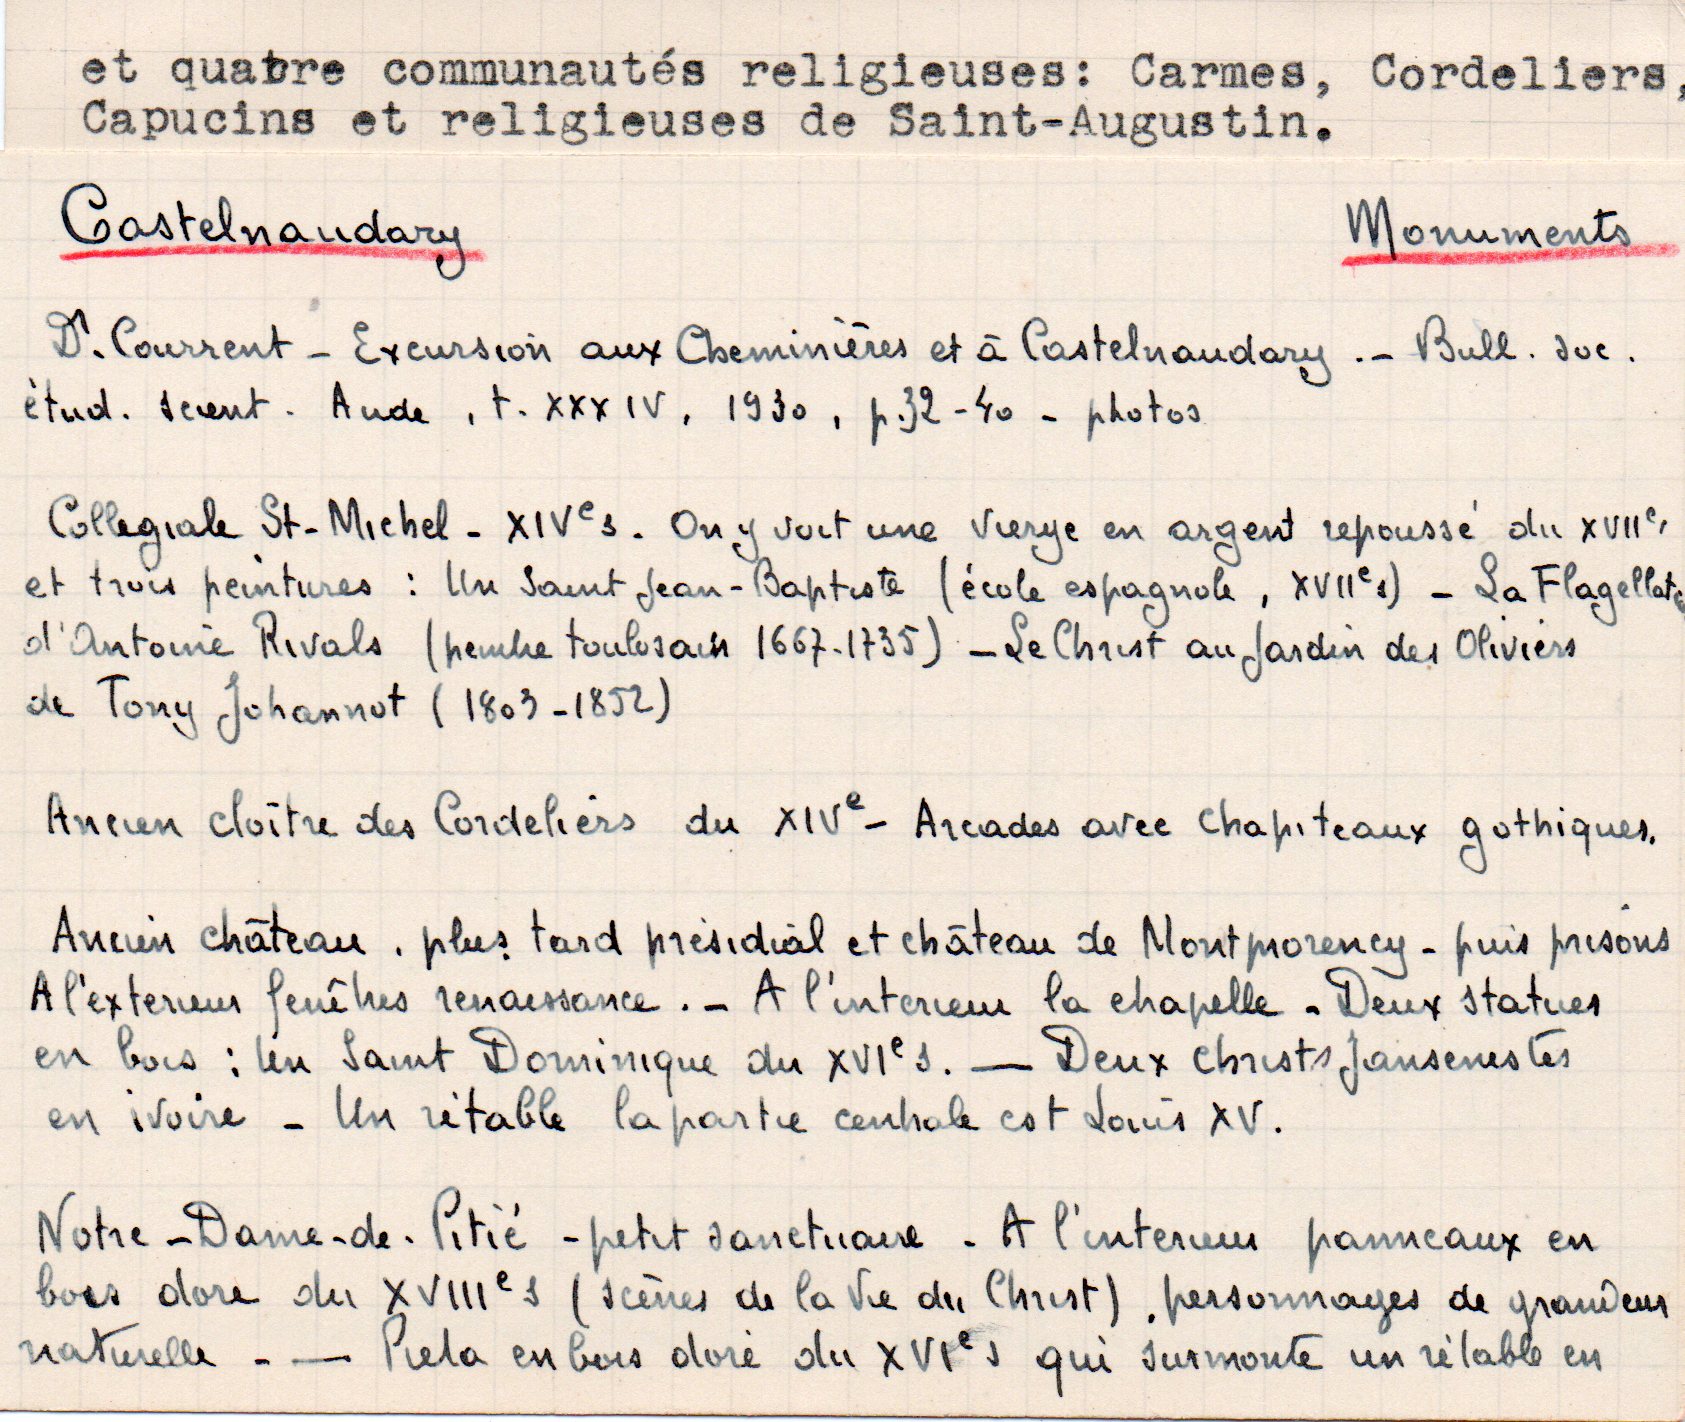 et quatre communautés religieuses: Carmes, Cordeliers,
Capucins et religieuses de Saint-Augustin.
Castelnaudary Monuments
Dr. Courrent - Excursion aux Cheminières et à Castelnaudary .- Bull. soc.
étud. scient. Aude, t. XXXIV, 1930, p.32-40 - photos
Collegiale St-Michel - XIVe s. On y voit une Vierge en argent repoussé du XVIIe,
et trois peintures : Un Saint Jean-Baptiste (école espagnole, XVIIe s) - La Flagellat
d'Antoine Rivals (peintre toulousain 1667-1735) - Le Christ au Jardin des Oliviers
de Tony Johannot (1803-1852)
Ancien cloître des Cordeliers du XIVe - Arcades avec chapiteaux gothiques.
Ancien château, plus tard présidial et château de Montmorency - puis prisons
A l'exterieur fenêtres renaissance. - A l'interieur la chapelle - Deux statues
en bois : Un Saint Dominique du XVIe s. — Deux Christs Jansenistes
en ivoire - Un rétable la partie centrale est Louis XV.
Notre-Dame-de-Pitié - petit sanctuaire - A l'interieur panneaux en
bois doré du XVIIIe s (scènes de la Vie du Christ), personnages de grandeur
naturelle - — Pieta en bois doré du XVIe s qui surmonte un rétable en